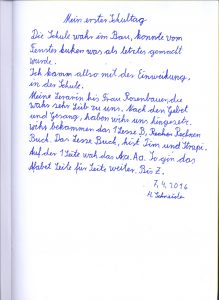 Mein erster Schultag
Die Schule wahr im Bau, konnte vom
Fenster kuken was als letztes gemalt
wurde.
Ich kamm allso mit der Einweihung,
in der Schule.
Meine Lerarin his Frau Rosenbauer, die
wahr sehr Lüb zu uns. Nach dem Gebet
und Gesang, haben wihr uns hingesetz.
Wihr bekammen das 1 Lesse B, Rechen
Buch. Das Lesse Buch, hist Tim und
Auf der 1 Seite wah das Aa. Aa. So gin das
Afabet Seite für Seite weiter. Bis Z.
7.4.2016
H. Schneider